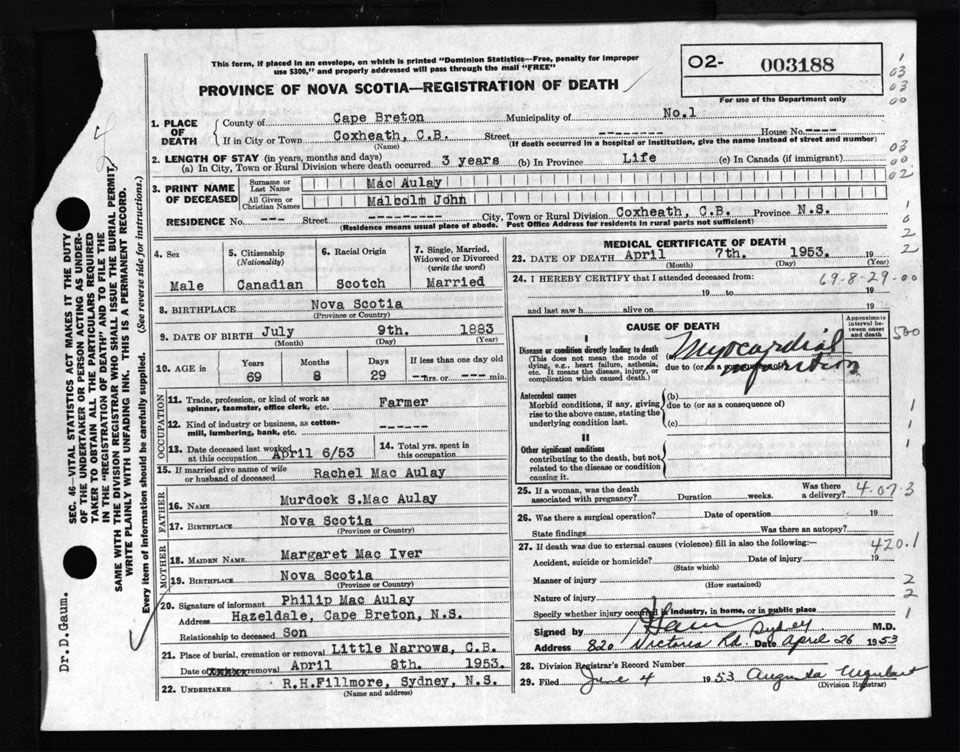 This form, if placed in an envelope, on which is printed "Dominion Statistics—Free, penalty for improper
use $300," and properly addressed will pass through the mail "FREE"
PROVINCE OF NOVA SCOTIA—REGISTRATION OF DEATH
02- 003188
For use of the Department only
1. PLACE OF DEATH
County of Cape Breton Municipality of No.1
If in City or Town Coxheath, C.B. Street -------- House No. ----
(Name) (If death occurred in a hospital or institution, give the name instead of street and number)
2. LENGTH OF STAY (in years, months and days)
(a) In City, Town or Rural Division where death occurred 3 years (b) In Province Life (c) In Canada (if immigrant)
3. PRINT NAME OF DECEASED
Surname or Last Name Mac Aulay
All Given or Christian Names Malcolm John
RESIDENCE No. --- Street --------- City, Town or Rural Division Coxheath, C.B. Province N.S.
(Residence means usual place of abode. Post Office Address for residents in rural parts not sufficient)
4. Sex
Male
5. Citizenship
(Nationality)
Canadian
6. Racial Origin
Scotch
7. Single, Married, Widowed or Divorced
(write the word)
Married
8. BIRTHPLACE Nova Scotia
(Province or Country)
9. DATE OF BIRTH July 9th. 1883
(Month) (Day) (Year)
10. AGE in
Years Months Days If less than one day old
69 8 29 --hrs. or --- min.
OCCUPATION
11. Trade, profession, or kind of work as
spinner, teamster, office clerk, etc. Farmer
12. Kind of industry or business, as cotton-
mill, lumbering, bank, etc. ------
13. Date deceased last worked
at this occupation April 6/53
14. Total yrs. spent in
this occupation
15. If married give name of wife
or husband of deceased Rachel Mac Aulay
FATHER
16. NAME Murdock S.Mac Aulay
17. BIRTHPLACE Nova Scotia
(Province or Country)
MOTHER
18. MAIDEN NAME Margaret Mac Iver
19. BIRTHPLACE Nova Scotia
(Province or Country)
20. Signature of informant Philip Mac Aulay
Address Hazeldale, Cape Breton, N.S.
Relationship to deceased Son
21. Place of burial, cremation or removal Little Narrows, C.B.
Date of removal April 8th. 1953.
22. UNDERTAKER R.H.Fillmore, Sydney, N.S.
(Name and address)
MEDICAL CERTIFICATE OF DEATH
23. DATE OF DEATH April 7th. 1953.
(Month) (Day) (Year)
24. I HEREBY CERTIFY that I attended deceased from:
69-8-29-00
19 to 19
and last saw h alive on 19
CAUSE OF DEATH
Approximate interval between onset and death
I
Disease or condition directly leading to death
(This does not mean the mode of
dying, e.g., heart failure, asthenia,
etc. It means the disease, injury, or
complication which caused death.)
(a) Myocardial
due to (or as a consequence of)
Antecedent causes
Morbid conditions, if any, giving
rise to the above cause, stating the
underlying condition last.
(b)
due to (or as a consequence of)
(c)
II
Other significant conditions
contributing to the death, but not
related to the disease or condition
causing it.
25. If a woman, was the death
associated with pregnancy? Duration weeks. Was there
a delivery? 4-07-3
26. Was there a surgical operation? Date of operation 19
State findings Was there an autopsy?
27. If death was due to external causes (violence) fill in also the following:— 420.1
Accident, suicide or homicide? Date of injury 19
(State which)
Manner of injury
(How sustained)
Nature of injury
Specify whether injury occurred in industry, in home, or in public place
Signed by Gaum Sydney M.D.
Address 820 Victoria Rd. Date April 26 1953
28. Division Registrar's Record Number
29. Filed June 4 1953 Augusta Urquhart
(Division Registrar)
SEC. 46—VITAL STATISTICS ACT MAKES IT THE DUTY
OF THE UNDERTAKER OR PERSON ACTING AS UNDER-
TAKER TO OBTAIN ALL THE PARTICULARS REQUIRED
IN THE "REGISTRATION OF DEATH" AND TO FILE THE
SAME WITH THE DIVISION REGISTRAR WHO SHALL ISSUE THE BURIAL PERMIT.
WRITE PLAINLY WITH UNFADING INK. THIS IS A PERMANENT RECORD.
Every item of information should be carefully supplied. (See reverse side for instructions.)
Dr. D. Gaum.
1
03
03
00
03
00
02
1
0
2
2
500
1
1
1
2
2
1